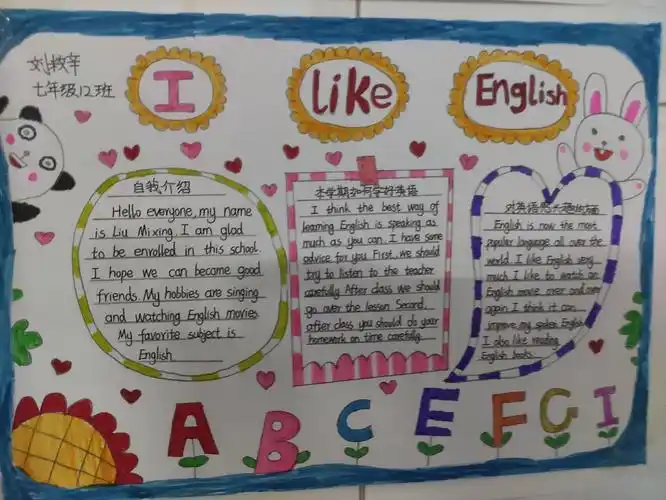 七年级12班
I
like
English
自我介绍
Hello everyone, my name
is Liu Mixing. I am glad
to be enrolled in this school.
I hope we can become good
friends. My hobbies are singing
and watching English movies.
My favorite subject is
English
本学期如何学好英语
I think the best way of
learning English is speaking as
much as you can. I have some
advice for you. First, we should
try to listen to the teacher
carefully. After class we should
go over the lesson. Second,
after class you should do your
homework on time carefully.
对英语
English is now the most
popular language all over the
world. I like English very
much. I like to watch an
English movie over and over
again. I think it can
improve my spoken English.
I also like reading
English books.
A B C E F G I